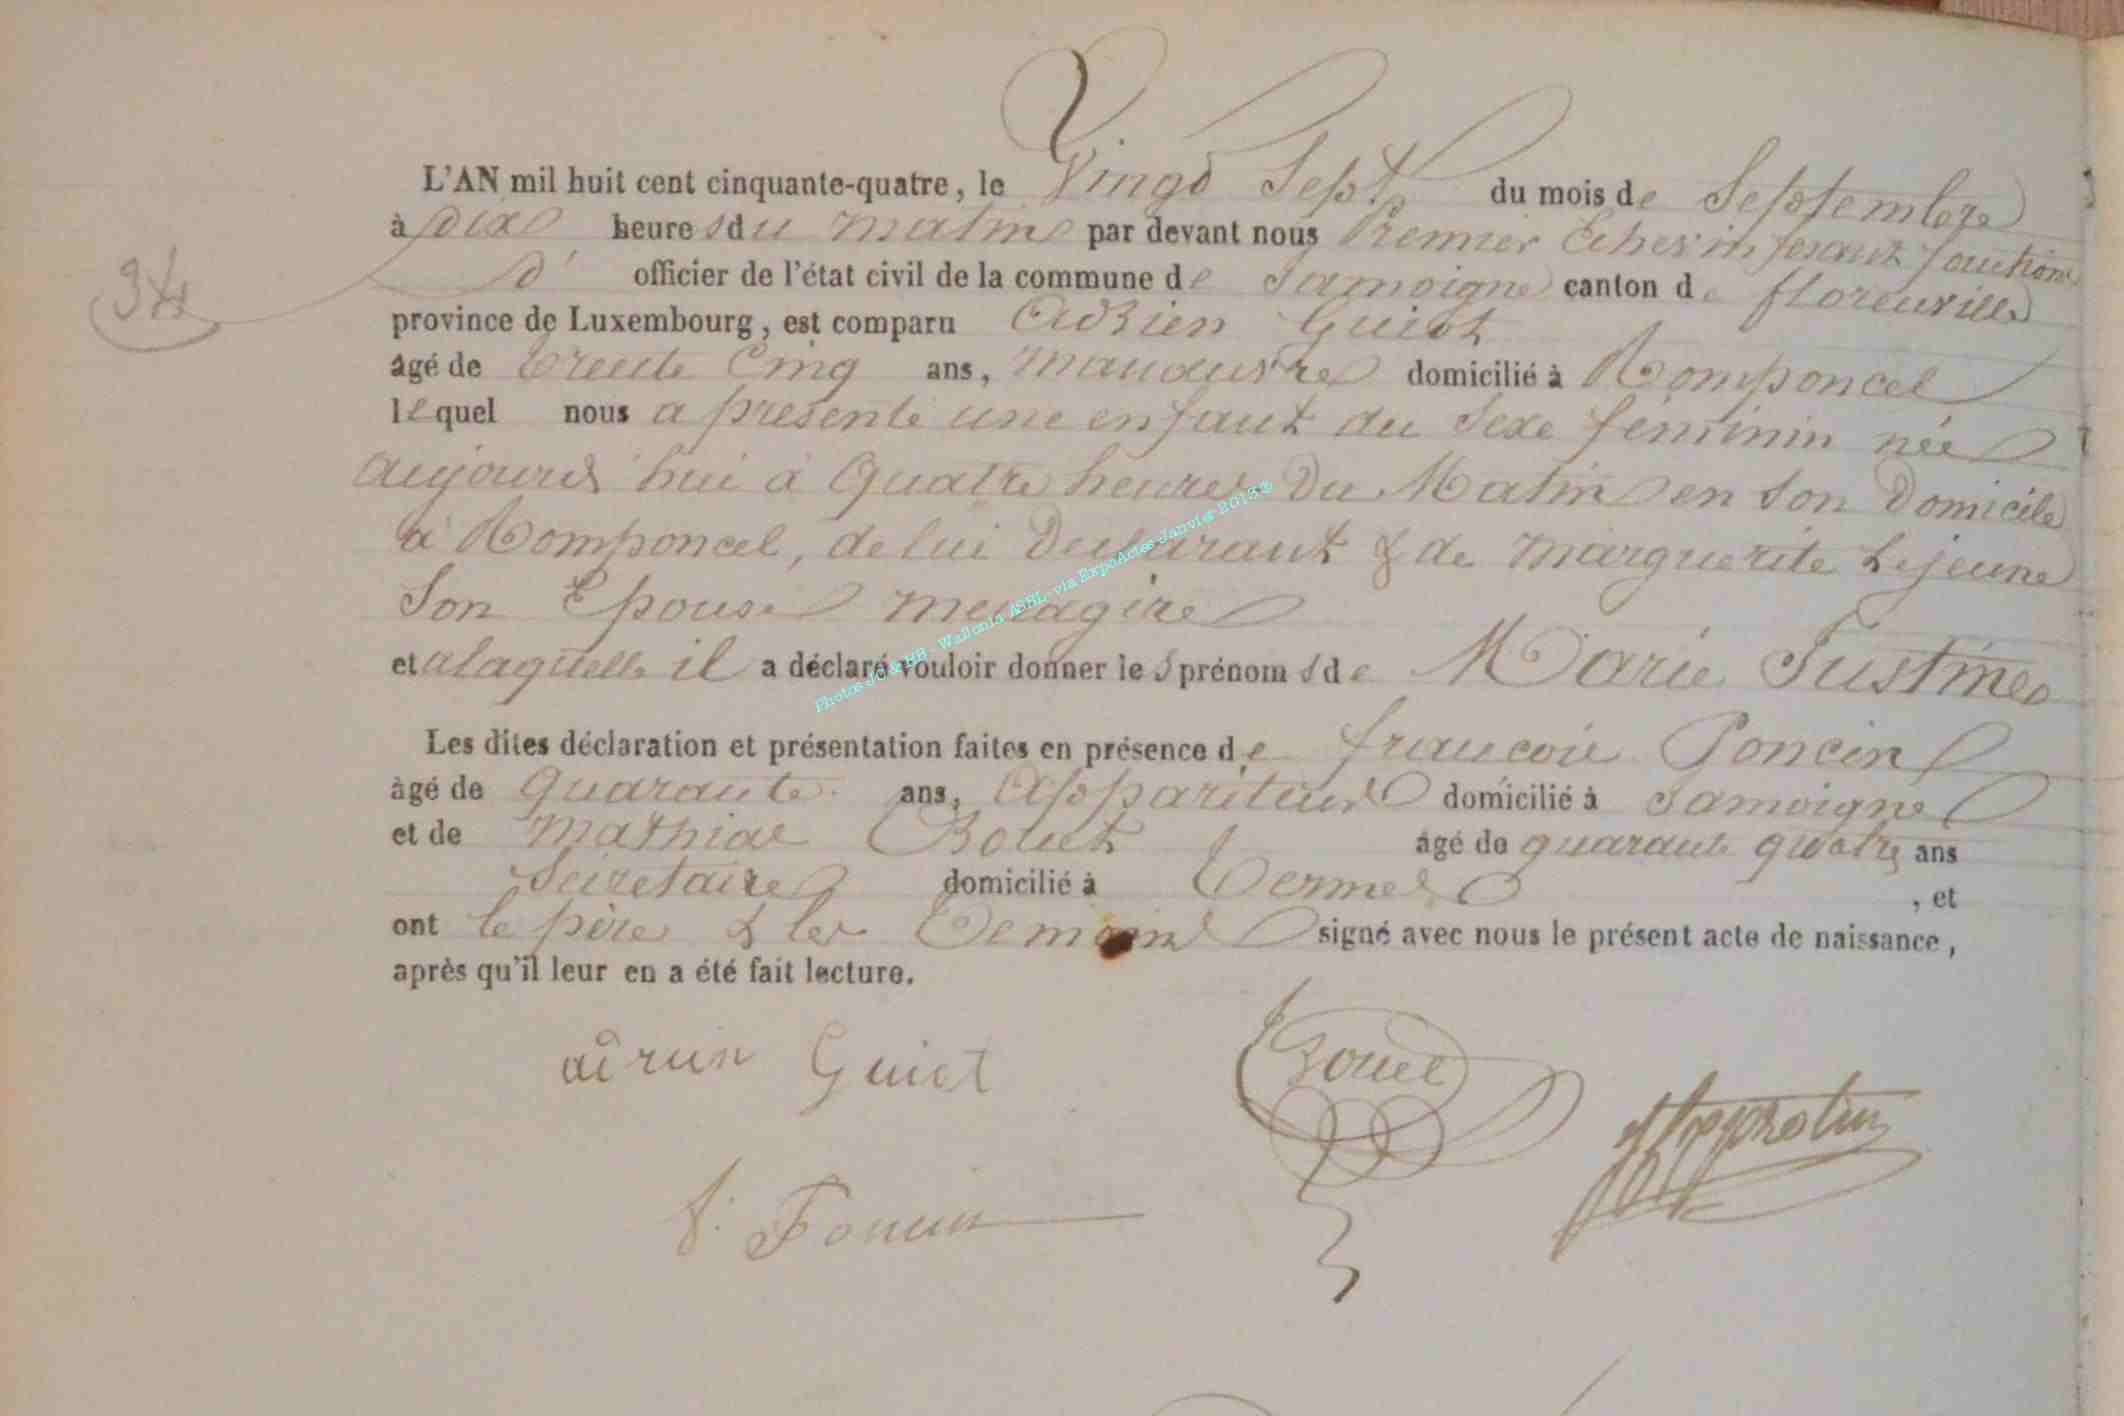 L'AN mil huit cent cinquante-quatre, le Vingt Sept du mois de Septembre
à dix heures du matin par devant nous Premier Echevin fesant fonctions
34
d' officier de l'état civil de la commune de Jamoigne canton de florenville
province de Luxembourg, est comparu Adrien Guiot
âgé de trente Cinq ans, manœuvre domicilié à Romponcel
lequel nous a présenté une enfant du Sexe féminin née
aujourd'hui à Quatre heures Du Matin en son Domicile
à Romponcel, de lui Déclarant & de marguerite Lejeune
Son Epouse menagère
et a laquelle il a déclaré vouloir donner les prénoms de Marie Justine
Les dites déclaration et présentation faites en présence de francois Poncin
âgé de Quarante ans, Appariteur domicilié à Jamoigne
et de mathias Bouet âgé de quarante quatre ans
Secretaire domicilié à Termes , et
ont le père & les Temoins signé avec nous le présent acte de naissance,
après qu'il leur en a été fait lecture.
adrien Guiot
Bouet
f. Poncin
Photos JC & HB - Wallonia ASBL - via ExpoActes Janvier 2013